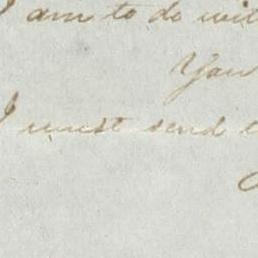 I am to do wit
You
I must send